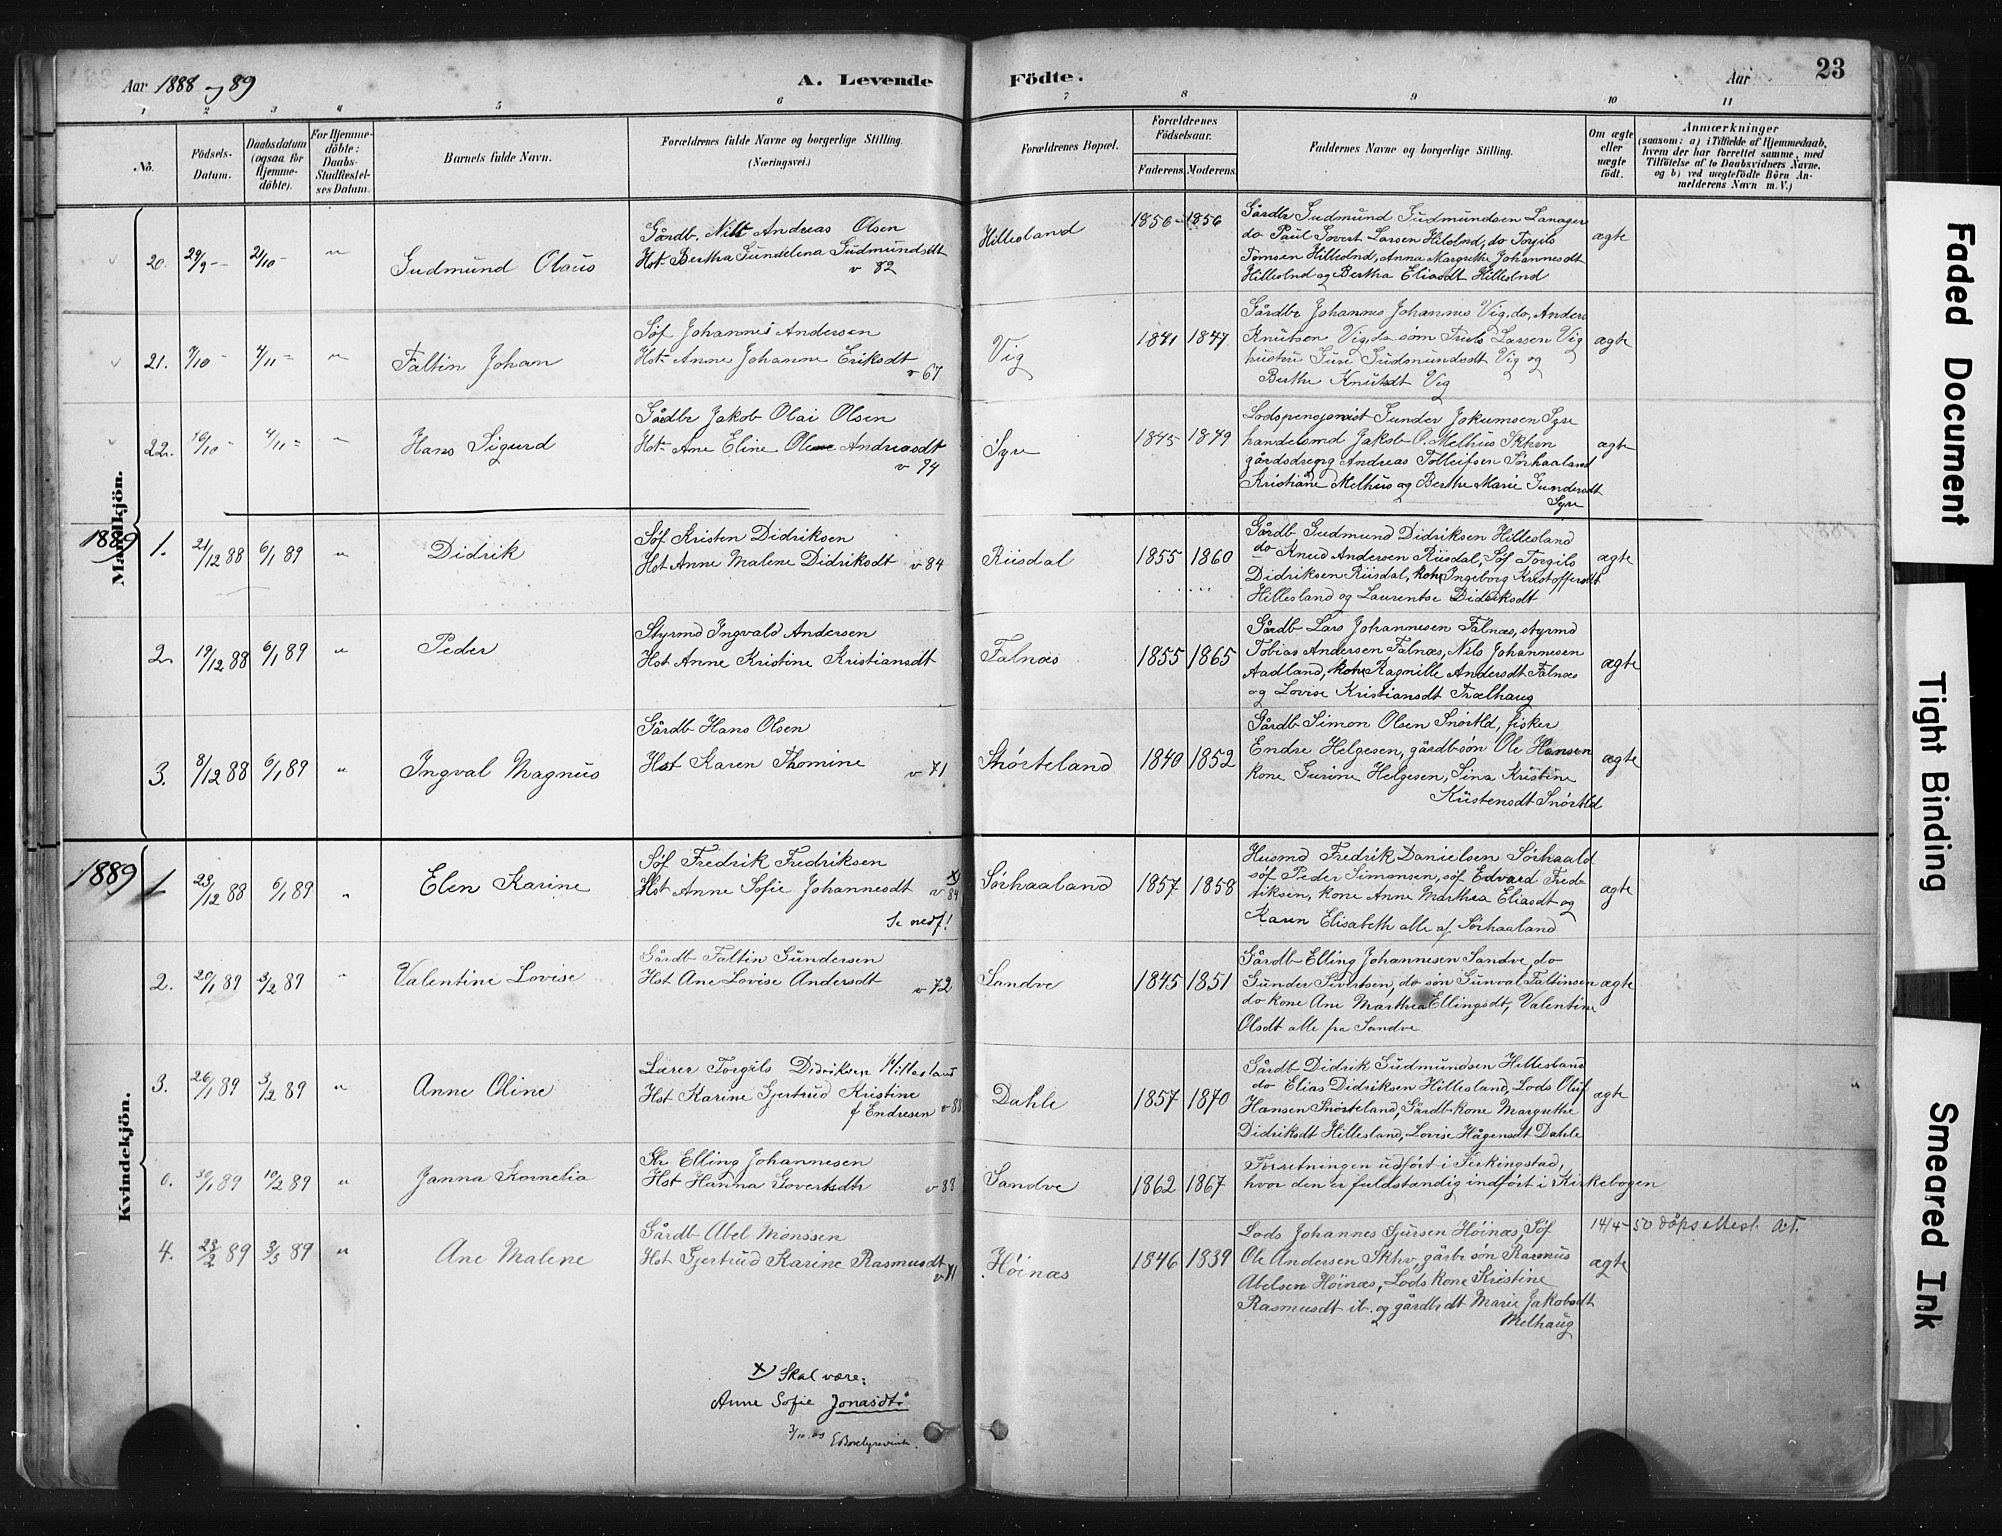 Aar 1888 og 89
A. Levende Födte.
Aar
23
1 2 3 4 5 6 7 8 9 10 11
No.
Födsels-Datum.
Daabsdatum (ogsaa for Hjemme-döbte).
For Hjemme-döbte: Daabs-Stadfæstel-ses Datum.
Barnets fulde Navn.
Forældrenes fulde Navne og borgerlige Stilling. (Næringsvei.)
Forældrenes Bopæl.
Forældrenes Födselsaar.
Faderens. Moderens.
Faddernes Navne og borgerlige Stilling.
Om ægte eller uægte födt.
Anmærkninger
(saasom: a) i Tilfælde af Hjemmedaab,
hvem der har forrettet samme, med
Tilföielse af to Daabsvidners Navne,
og b) ved uægtefödte Börn An-
melderens Navn m. V.)
Mandkjön.
20. 29/9 - 21/10 - " Gudmund Olaus
Gårdb. Nils Andreas Olsen
Hst. Bertha Gundelena Gudmundsdt
v 82
Hillesland 1856 1856
Gårdbr Gudmund Gudmundsen Lanager
do Paul Govert Larsen Hilslnd, do Torgils
Tomsen Hilleslnd, Anna Margrethe Johannesdt
Hilleslnd og Bertha Eliasdt Hilleslnd
ægte
21. 7/10 - 4/11 - " Faltin Johan
Söf Johannes Andersen
Hst Anne Johanne Eriksdt
v 67
Vig 1841 1847
Gårdbr Johannes Johannes Vig, do, Anders
Knutsen Vig, do søn Truls Larsen Vig
hustru Guri Gudmundsdt Vig og
Berthe Knutsdt Vig
ægte
22. 10/10 - 4/11 - " Hans Sigurd
Gårdbr Jakob Olai Olsen
Hst Ane Eline Andreasdt
v 74
Syre 1845 1849
Lodspensjonist Gunder Jokumsen Syre
handelsmd Jakob O. Melhus Skhvn
gårdsdreng Andreas Tolleifsen Sörhaaland
Kristiane Melhus og Berthe Marie Gundersdt
Syre
ægte
1889
1. 21/12 88 6/1 89 " Didrik
Söf Kristen Didriksen
Hst Anne Malene Didriksdt v 84
Riisdal 1855 1860
Gårdb Gudmund Didriksen Hillesland
do Knud Andersen Riisdal, Söf Torgils
Didriksen Riisdal, kone Ingeborg Kristoffersdt
Hillesland og Laurentse Didriksdt
ægte
2. 19/12 88 6/1 89 " Peder
Styrmd Ingvald Andersen
Hst Anne Kristine Kristiansdt
Falnæs 1855 1865
Gårdb Lars Johannesen Falnæs, styrmd
Tobias Andersen Falnæs, Nils Johannesen
Aadland, kone Ragnille Andersdt Falnæs
og Lovise Kristiansdt Trælhaug
ægte
3. 8/12 88 6/1 89 " Ingval Magnus
Gårdb Hans Olsen
Hst Karen Thomine v 71
Snörteland 1840 1852
Gårdb Simon Olsen Snörtld, fisker
Endre Helgesen, gårdb søn Ole Hansen
kone Gurine Helgesen, Sina Kristine
Kristensdt Snörtld
ægte
Kvindekjön.
1889
1 23/12 88 6/1 89 " Elen Karine
Söf Fredrik Fredriksen
Hst Anne Sofie Johannesdt x) v 84
Se nedf!
Sörhaaland 1857 1858
Husmd Fredrik Danielsen Sörhaald
söf Peder Simonsen, söf Edvard Fred-
riksen, kone Anne Marthea Eliasdt og
Karen Elisabeth alle af Sörhaaland
ægte
2. 20/1 89 3/2 89 " Valentine Lovise
Gårdb Faltin Gundersen
Hst Ane Lovise Andersdt
v 72
Sandve 1845 1851
Gårdb Elling Johannesen Sandve, do
Gunder Sivertsen, do søn Gunval Faltinsen
do kone Ane Marthea Ellingsdt, Valentine
Olsdt alle på Sandve
ægte
3. 26/1 89 3/2 89 " Anne Oline
Lærer Torgils Didriksen Hillesland
Hst Karine Gjertrud Kristine
f Endresen v 88
Dahle 1857 1870
Gårdb Didrik Gudmundsen Hillesland
do Elias Didriksen Hillesland, Lods Oluf
Hansen Snörteland, Gårdb kone Margrethe
Didriksdt Hillesland, Lovise Hågensdt Dahle
ægte
0. 30/1 89 10/2 89 " Janna Kornelia
Str Elling Johannesen
Hst Hanna Govertsdtr v 88
Sandve 1862 1867
Forretningen udfört i Ferkingstad,
hvor den er fuldstændig indfört i Kirkebogen
4. 23/2 89 3/3 89 " Ane Malene
Gårdb Abel Monssen
Hst Gjertrud Karine Rasmusdt
v 71
Höinæs 1846 1839
Lods Johannes Sjursen Höinæs, Söf
Ole Andersen Skhv, gårdb søn Rasmus
Abelsen Höinæs, Lods kone Kristine
Rasmusdt ib. og gårdb dt Marie Jakobsdt
Melhaug
ægte
14/4-50 dåpsattest.
x) Skal være:
Anne Sofie Jonasdtr
Faded Document
Tight Binding
Smeared Ink